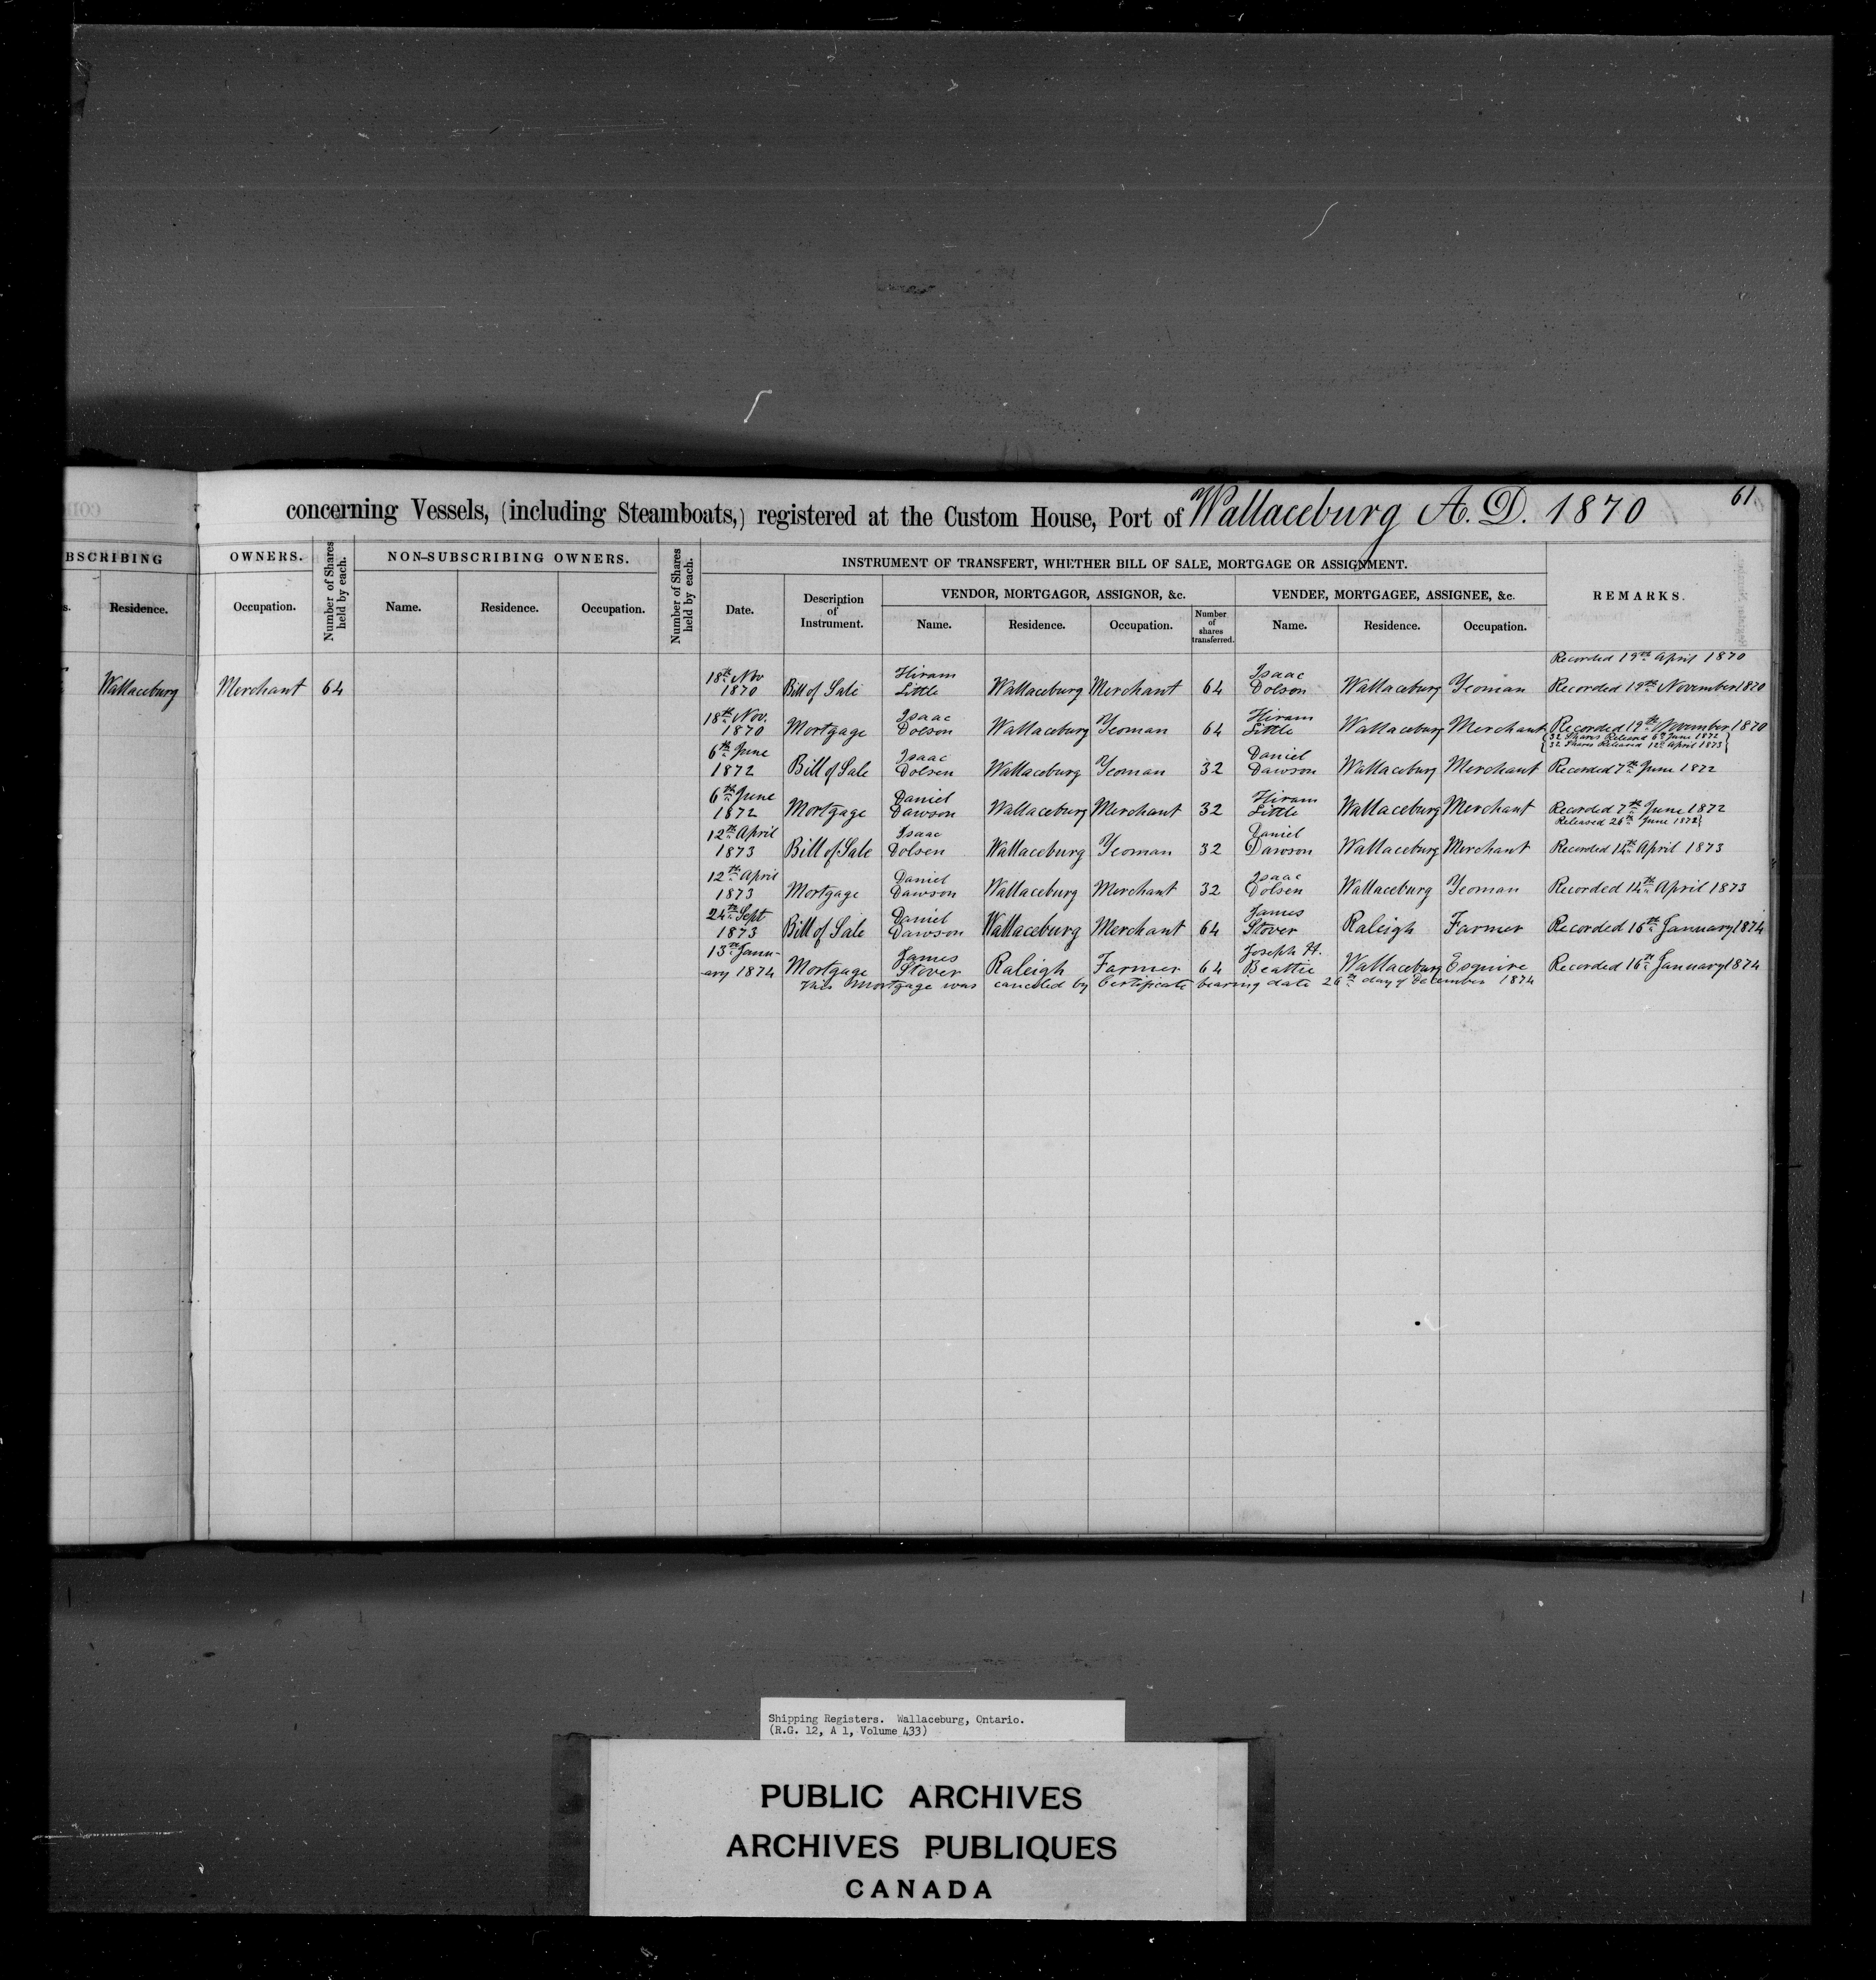 concerning Vessels, (including Steamboats,) registered at the Custom House, Port of Wallaceburg A. D. 1870
61
BSCRIBING OWNERS. Number of Shares held by each. NON-SUBSCRIBING OWNERS. Number of Shares held by each. INSTRUMENT OF TRANSFERT, WHETHER BILL OF SALE, MORTGAGE OR ASSIGNMENT. REMARKS.
VENDOR, MORTGAGOR, ASSIGNOR, &c. VENDEE, MORTGAGEE, ASSIGNEE, &c.
s. Residence. Occupation. Name. Residence. Occupation. Date. Description of Instrument. Name. Residence. Occupation. Number of shares transferred. Name. Residence. Occupation.
Recorded 19th April 1870
Wallaceburg Merchant 64
18th Nov 1870 Bill of Sale Hiram Little Wallaceburg Merchant 64 Isaac Dolson Wallaceburg Yeoman Recorded 19th November 1870
18th Nov. 1870 Mortgage Isaac Dolson Wallaceburg Yeoman 64 Hiram Little Wallaceburg Merchant Recorded 19th November 1870
32 Shares Released 6th June 1872
32 Shares Released 12th April 1873
6th June 1872 Bill of Sale Isaac Dolsen Wallaceburg Yeoman 32 Daniel Dawson Wallaceburg Merchant Recorded 7th June 1872
6th June 1872 Mortgage Daniel Dawson Wallaceburg Merchant 32 Hiram Little Wallaceburg Merchant Recorded 7th June 1872
Released 26th June 1872
12th April 1873 Bill of Sale Isaac Dolsen Wallaceburg Yeoman 32 Daniel Dawson Wallaceburg Merchant Recorded 14th April 1873
12th April 1873 Mortgage Daniel Dawson Wallaceburg Merchant 32 Isaac Dolsen Wallaceburg Yeoman Recorded 14th April 1873
24th Sept 1873 Bill of Sale Daniel Dawson Wallaceburg Merchant 64 James Stover Raleigh Farmer Recorded 16th January 1874
13th January 1874 Mortgage James Stover Raleigh Farmer 64 Joseph H. Beattie Wallaceburg Esquire Recorded 16th January 1874
This Mortgage was canceled by Certificate bearing date 26th day of December 1874
Shipping Registers. Wallaceburg, Ontario.
(R.G. 12, A 1, Volume 433)
PUBLIC ARCHIVES
ARCHIVES PUBLIQUES
CANADA